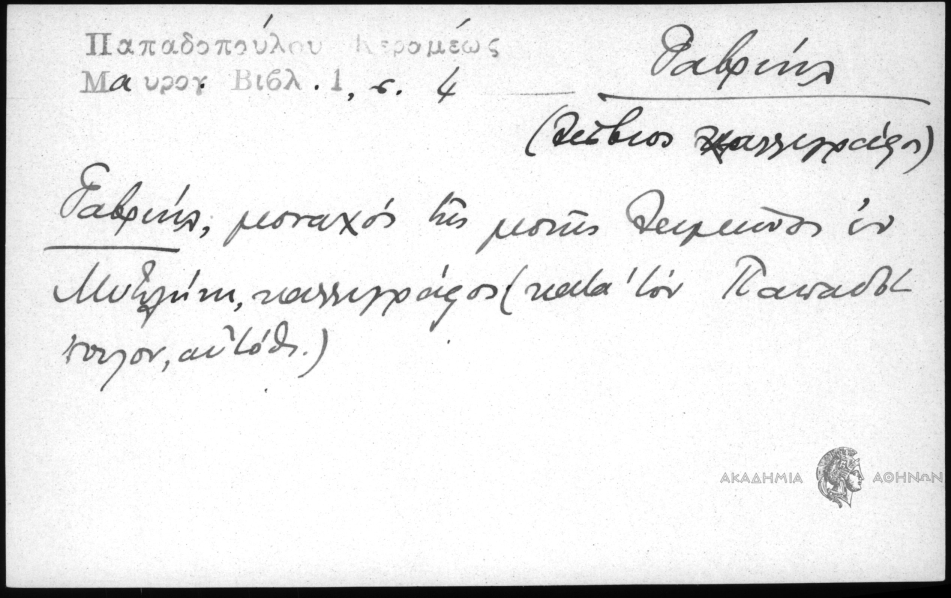 Παπαδοπούλου Κεραμέως
Μαυρογ. Βιβλ. 1, σ. 4
Γαβριήλ
(Λέσβιος καλλιγράφος)
Γαβριήλ, μοναχός τῆς μονῆς Λειμῶνος ἐν
Μυτιλήνῃ, καλλιγράφος (κατὰ τὸν Παπαδό
πουλον, αὐτόθι.)
ΑΚΑΔΗΜΙΑ ΑΘΗΝΩΝ